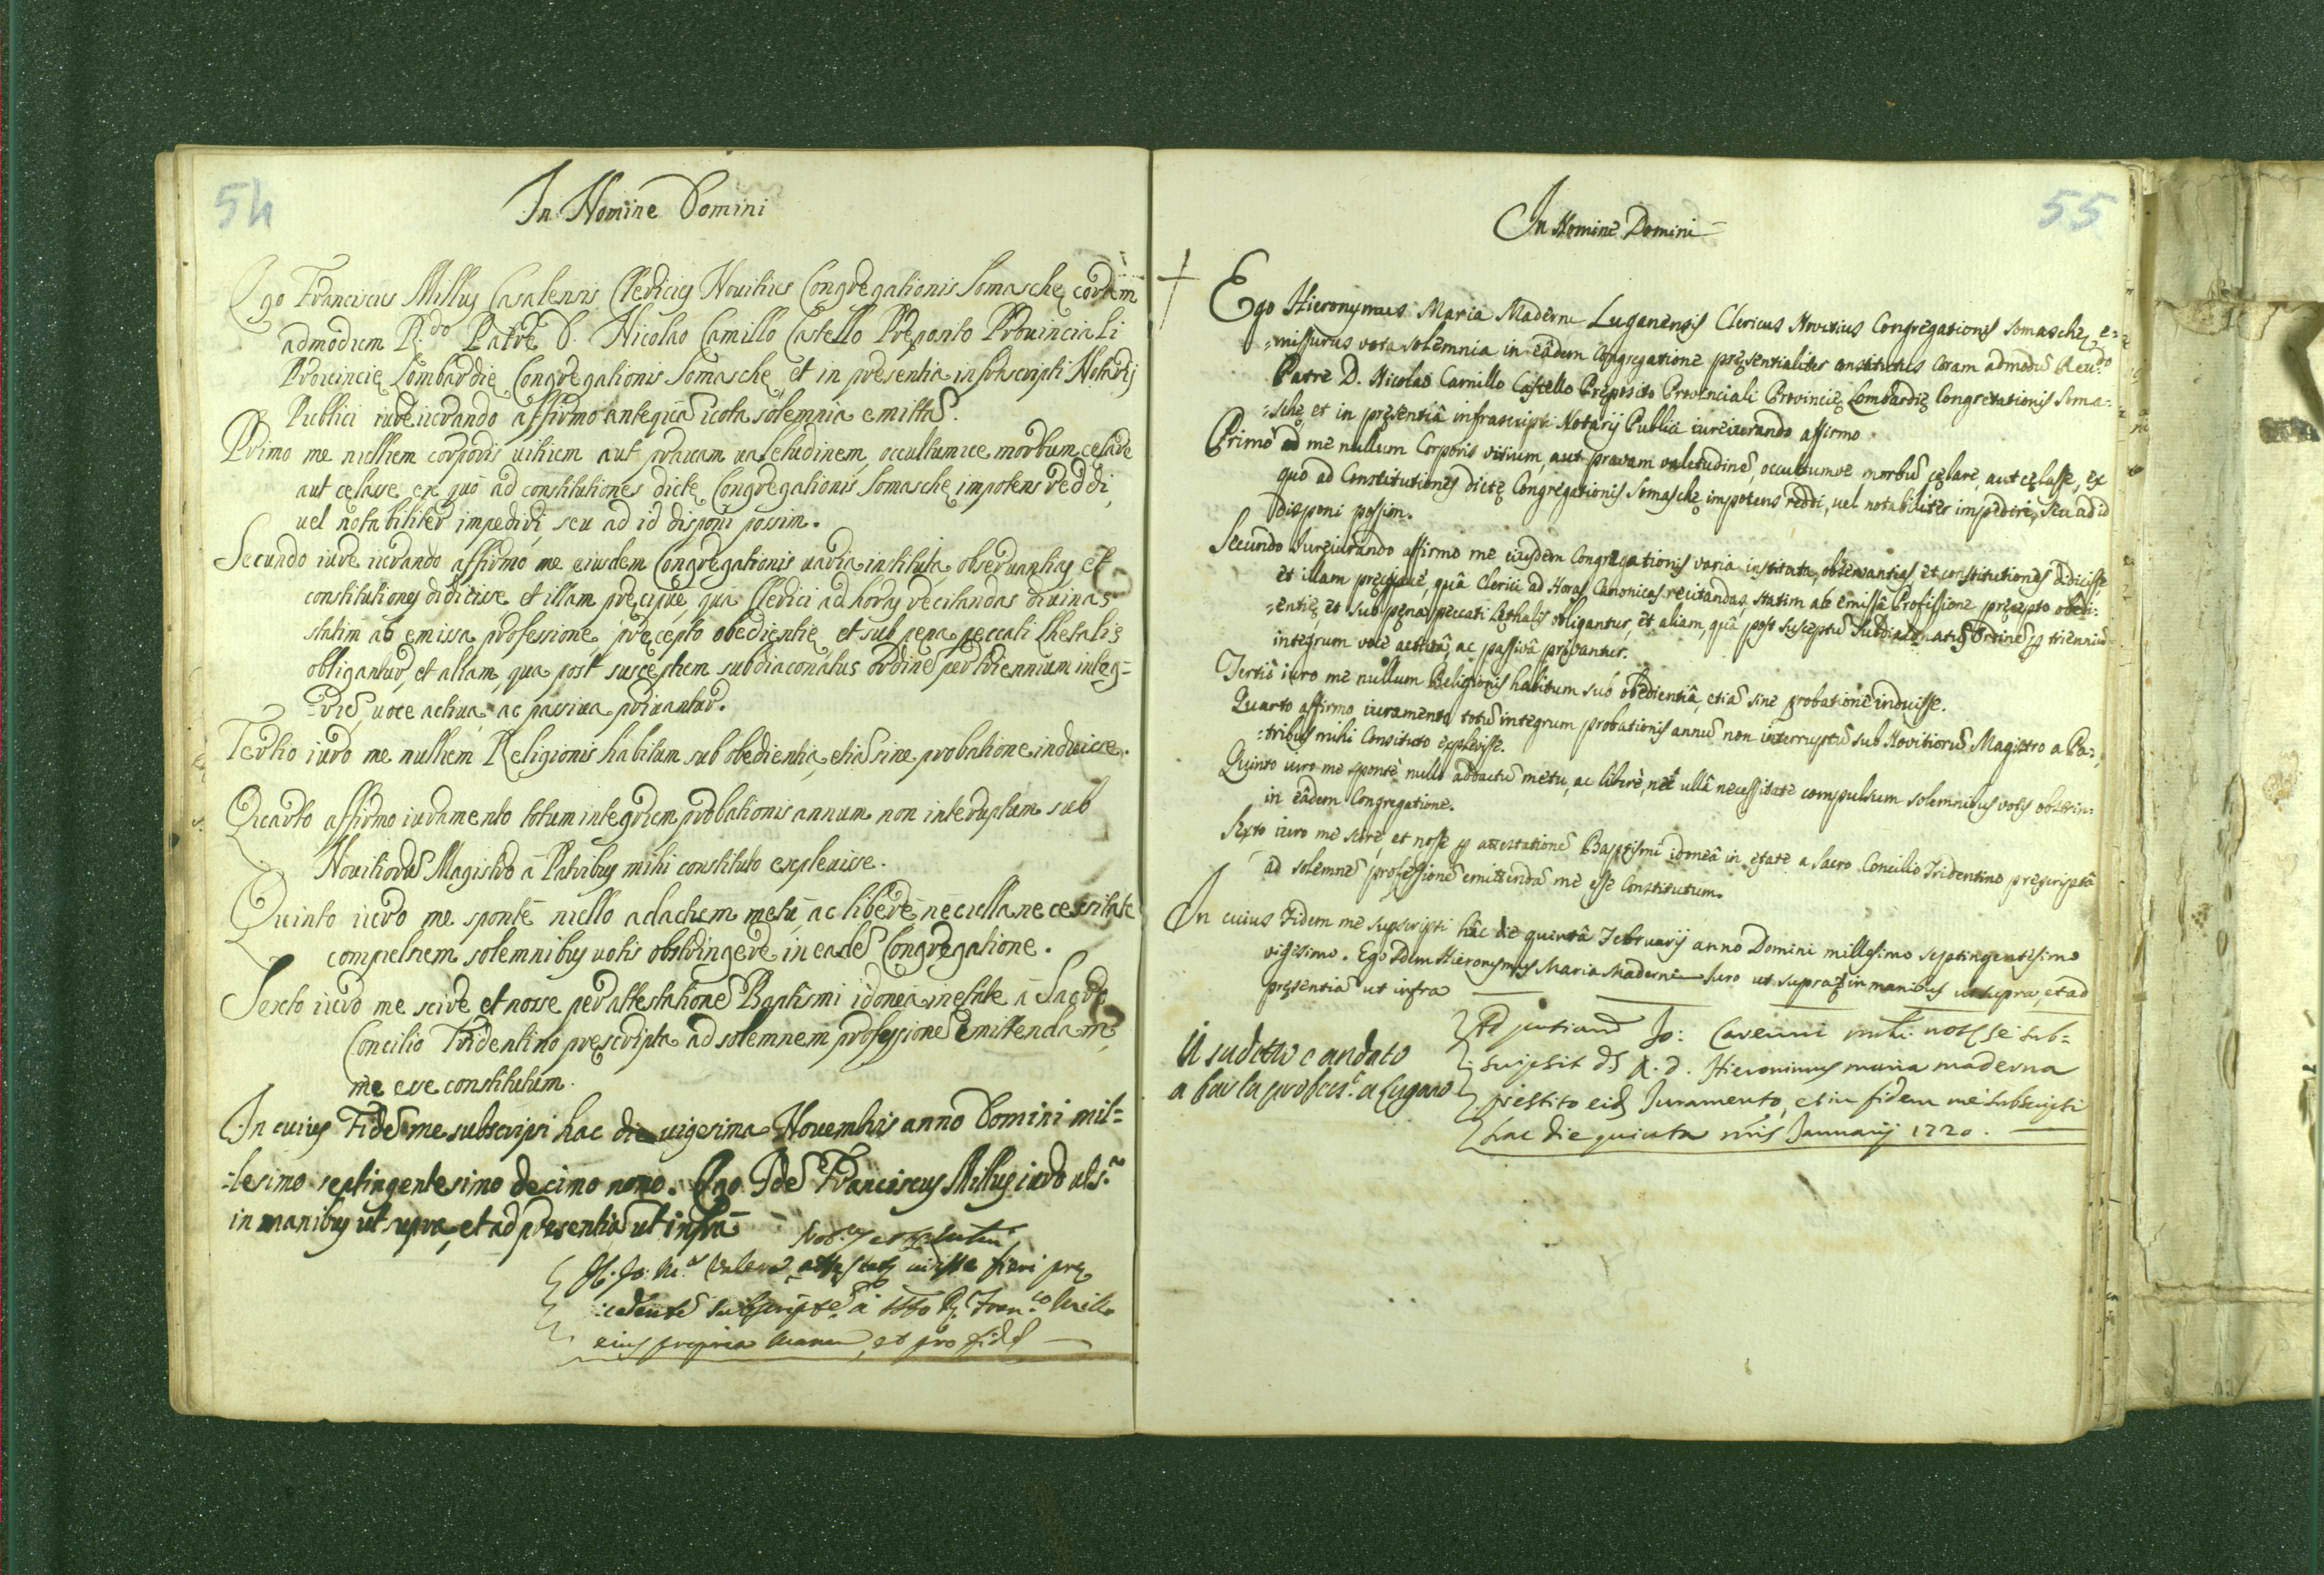 54
In Nomine Domini
Ego Franciscus Millus Casalensis Clericus Nouitius Congregationis Somaschę coram
admodum R.do Patre D. Nicolao Camillo Castello Preposito Prouinciali
Prouincię Lombardię Congregationis Somaschę et in presentia infrascripti Notarij
Publici iureiurando affirmo antequā uota solemnia emittā.
Primo me nullum corporis uitium aut prauam ualetudinem, occultumue morbum celare
aut celasse ex quo ad constitutiones dictę Congregationis Somaschę impotens reddi,
uel notabiliter impediri, seu ad id disponi possim.
Secundo iure iurando affirmo me eiusdem Congregationis uaria instituta, obseruantias et
constitutiones didicisse et illam pręcipuę, qua Clerici ad horas recitandas diuinas
statim ab emissa professione, pręcepto obedientię, et sub pęna peccati lhetalis
obligantur, et aliam, qua post susceptum subdiaconatus ordinē per triennium integ=
=rū, uoce actiua, ac passiua priuantur.
Tertio iuro me nullum Religionis habitum sub obedientia, etiā sine probatione induisse.
Quarto affirmo iuramento totum integrum probationis annum non interuptum sub
Nouitiorū Magistro a Patribus mihi constituto expleuisse.
Quinto iuro me sponte nullo adactum metu, ac libere nec ulla necessitate
compulsum solemnibus uotis obstringere in eadē Congregatione.
Sexto iuro me scire et nosse per attestationē Baptismi idonea in etate a Sacro
Concilio Tridentino prescripta ad solemnem professionē emittendam
me esse constitutum.
In cuius Fidē me subscripsi hac die uigesima Nouembris anno Domini mil=
=lesimo septingentesimo decimo nono. Ego Idē Franciscus Millus iuro ut s.a
in manibus ut supra, et ad presentiā ut infra
fieri prę
cedentē Fran.co Millo
eius propria manu, et pro fide
55
In Nomine Domini
Ego Hieronymus Maria Maderni Luganensis Clericus Novitius Congregationis Somaschę, e=
=missurus vota solemnia in eâdem Congregatione pręsentialiter constitutus coram admodū Reu.do
Patre D. Nicolao Camillo Castello Pręposito Provinciali Provincię Lombardię Congregationis Soma=
=schę, et in pręsentiâ infrascripti Notarij Publici iureiurando affirmo
Primò me nullum Corporis vitium, aut pravam valetudinē, occultumve morbū cęlare, aut cęlasse, ex
quo ad Constitutiones dictę Congregationis Somaschę impotens reddi, uel notabiliter impediri, seu ad id
disponi possim.
Secundo Jureiurando affirmo me eiusdem Congregationis varia instituta, observantias et constitutiones didicisse,
et illam pręcipuè, quâ Clerici ad Horas Canonicas recitandas statim ab emissâ Professione pręcepto obedi=
=entię, et sub pęna peccati Lęthalis obligantur, et aliam, quâ post susceptū Subdiaconatus Ordinē p trienniū
integrum voce activâ, ac passivâ privantur.
Tertiò iuro me nullum Religionis habitum sub obedientiâ, etiā sine probatione induisse.
Quarto affirmo iuramento totū integrum probationis annū non interruptū sub Novitiorū Magistro a Pa=
=tribus mihi Constituto explevisse.
Quinto iuro me spontè nullo adactū metu, ac liberè, nec ullâ necessitate compulsum solemnibus votis obstrin:
in eâdem Congregatione.
Sexto iuro me scire, et nosse p attestationē Baptismi idoneâ in ętate a Sacro Concilio Tridentino pręscriptâ
ad solemnē professionē emittendā me esse Constitutum.
In cuius Fidem me supscripsi hâc die quintâ Februarij anno Domini millesimo septingentesimo
vigesimo. Ego Idem Hieronymus Maria Maderni Iuro ut supra et in manibus ut supra, et ad
pręsentiā ut infra
Il sudetto è andato
a far la profess.e a Lugano
Jo: se sub=
R. D. Hieronimus maria maderna
prestito Juramento, et in fidem me subscripsi
hac die quinta Januarij 1720.